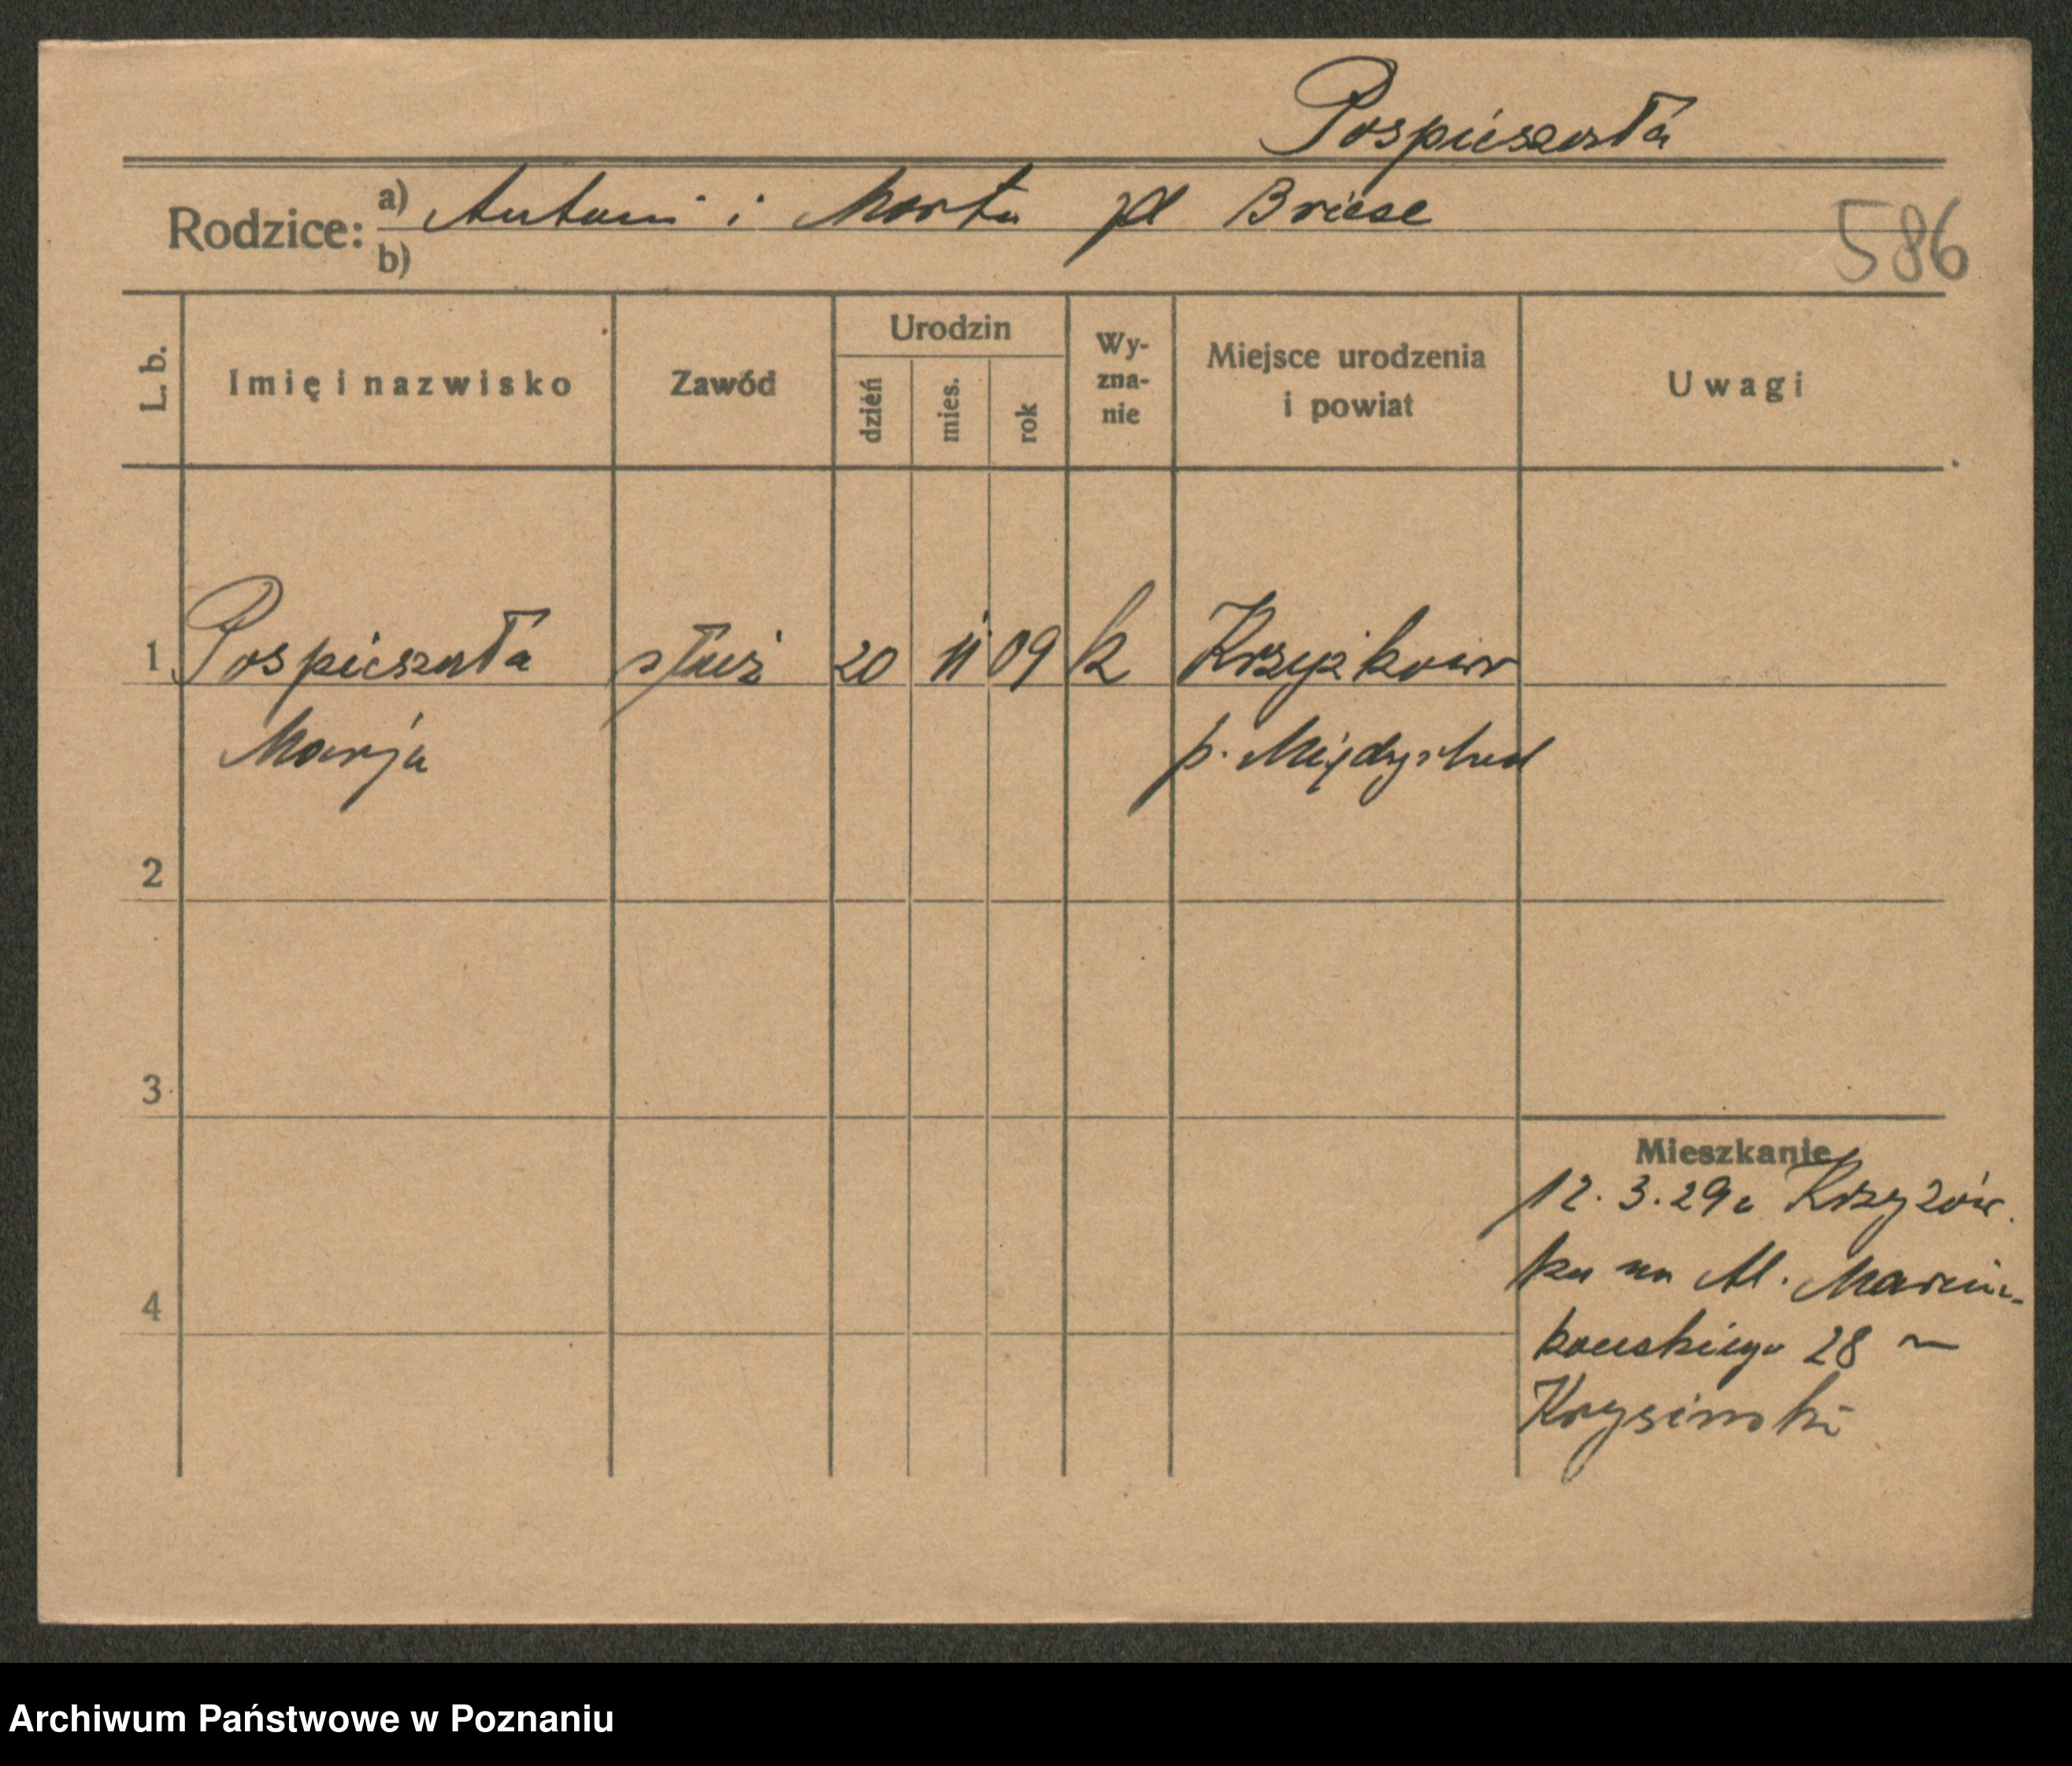 Pospieszała
Rodzice: a) Antoni i Marta zd Briese
b)
586
L. b.
Imię i nazwisko
Zawód
Urodzin
dzień
mies.
rok
Wy-
zna-
nie
Miejsce urodzenia
i powiat
Uwagi
1 Pospieszała służ 20 11 09 k
Marja p. Międzychod
2
3
4
Mieszkanie
12. 3. 29 z Krzyżów.
ka na Al. Marcin-
kowskiego 28 ~
Krysinski
Archiwum Państwowe w Poznaniu